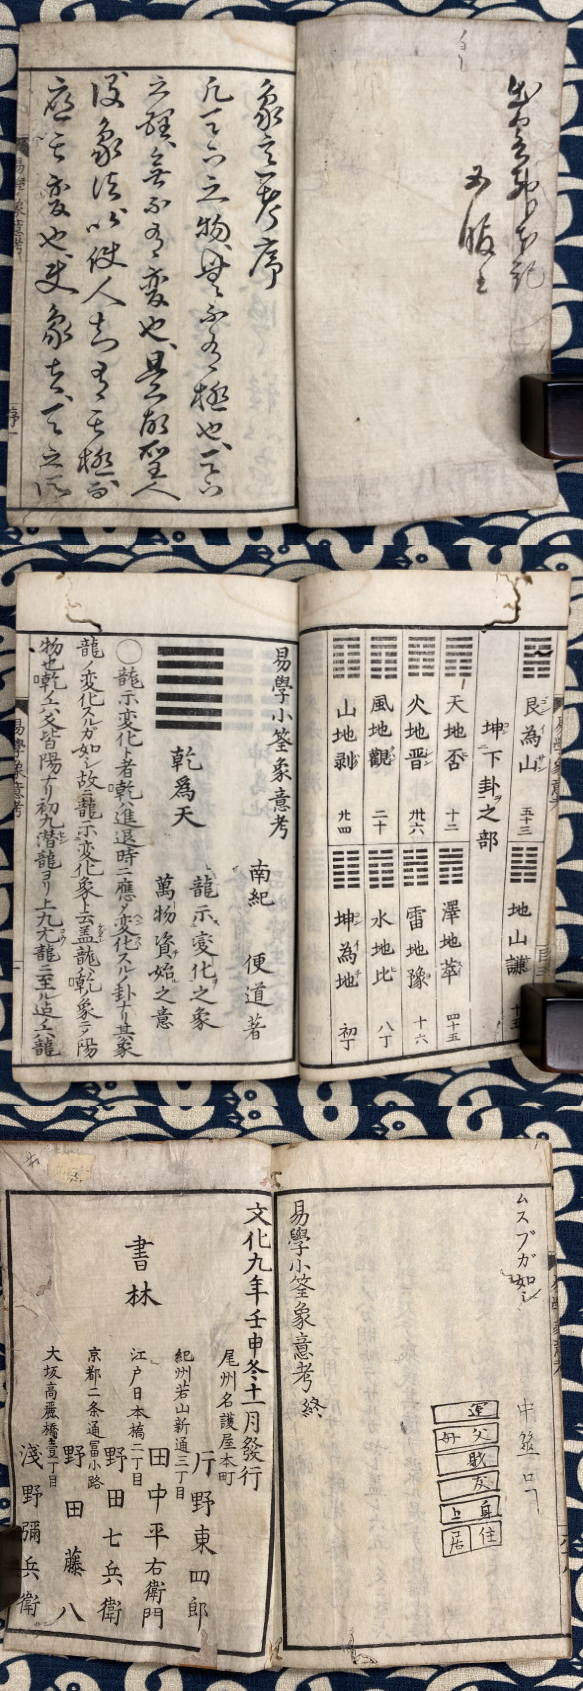 象意考序
凡天下之物無不有極也天下
之理無不有変也是故聖人
設象法以使人知有其極而
応其変也夫象者天之所
易學象意考
序一
艮為山
五十三
地山謙
十五
坤下卦之部
天地否
十二
澤地萃
四十五
火地晋
卅六
雷地豫
十六
風地觀
二十
水地比
八丁
山地剥
廿四
坤為地
初丁
易學小筌象意考
南紀 便道著
乾爲天
龍示変化之象
萬物資始之意
○龍示変化ト者乾ハ進退時ニ應メ変化スル卦ナリ其象
龍ノ変化スルガ如シ故ニ龍示変化象ト云蓋龍ハ乾ノ象ニメ陽
物也乾ハ六爻皆陽ナリ初九潜龍ヨリ上九亢龍ニ至ル迠六ハ龍
易學象意考
ムスブガ如シ
運
父母
賊
友
身上
住居
易學小筌象意考終
文化九年壬申冬十一月發行
尾州名護屋本町
片野東四郎
紀州若山新通三丁目
田中平右衛門
江戸日本橋二丁目
野田七兵衛
京都二条通冨小路
野田藤八
大坂高麗橋壹丁目
淺野彌兵衛
書林